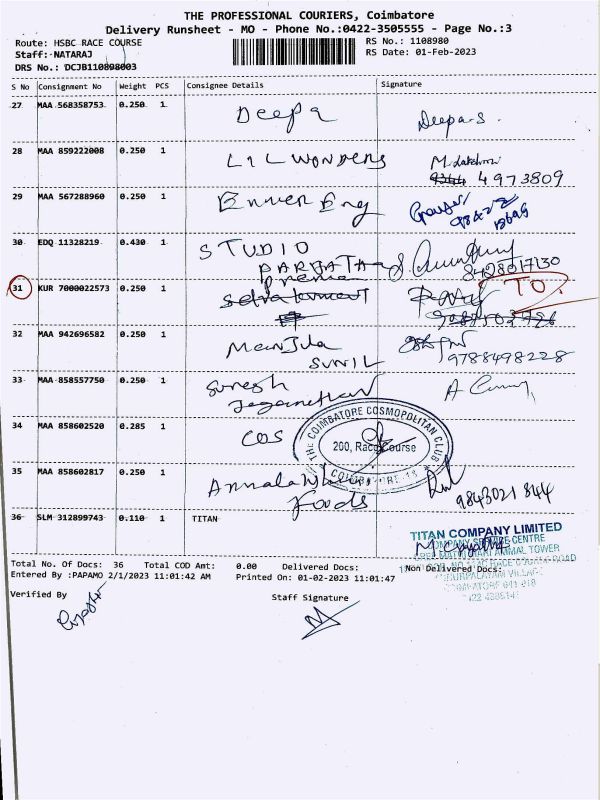 THE PROFESSIONAL COURIERS, Coimbatore
Delivery Runsheet - MO - Phone No.:0422-3505555 - Page No.:3
Route: HSBC RACE COURSE
RS No.: 1108980
Staff: NATARAJ
RS Date: 01-Feb-2023
DRS No.: DCJB110898003
S No Consignment No Weight PCS Consignee Details Signature
27 MAA 568358753 0.250 1 Deepa Deepa.S.
28 MAA 859222008 0.250 1 LIL WONDERS M. Lakshmi
4973809
29 MAA 567288960 0.250 1
30 EDQ 11328219 0.430 1 STUDIO
PARVATA
8428017130
31 KUR 7000022573 0.250 1 TO.
32 MAA 942696582 0.250 1 Manjula
SUNIL 9788498228
33 MAA 858557750 0.250 1 Suresh
34 MAA 858602520 0.285 1 COS
THE COIMBATORE COSMOPOLITAN CLUB
200, Race Course
35 MAA 858602817 0.250 1 Annalakshmi
Foods 9843021844
36 SLM 312899743 0.110 1 TITAN
TITAN COMPANY LIMITED
Total No. Of Docs: 36 Total COD Amt: 0.00 Delivered Docs: Non Delivered Docs:
Entered By :PAPAMO 2/1/2023 11:01:42 AM Printed On: 01-02-2023 11:01:47
Verified By
Staff Signature